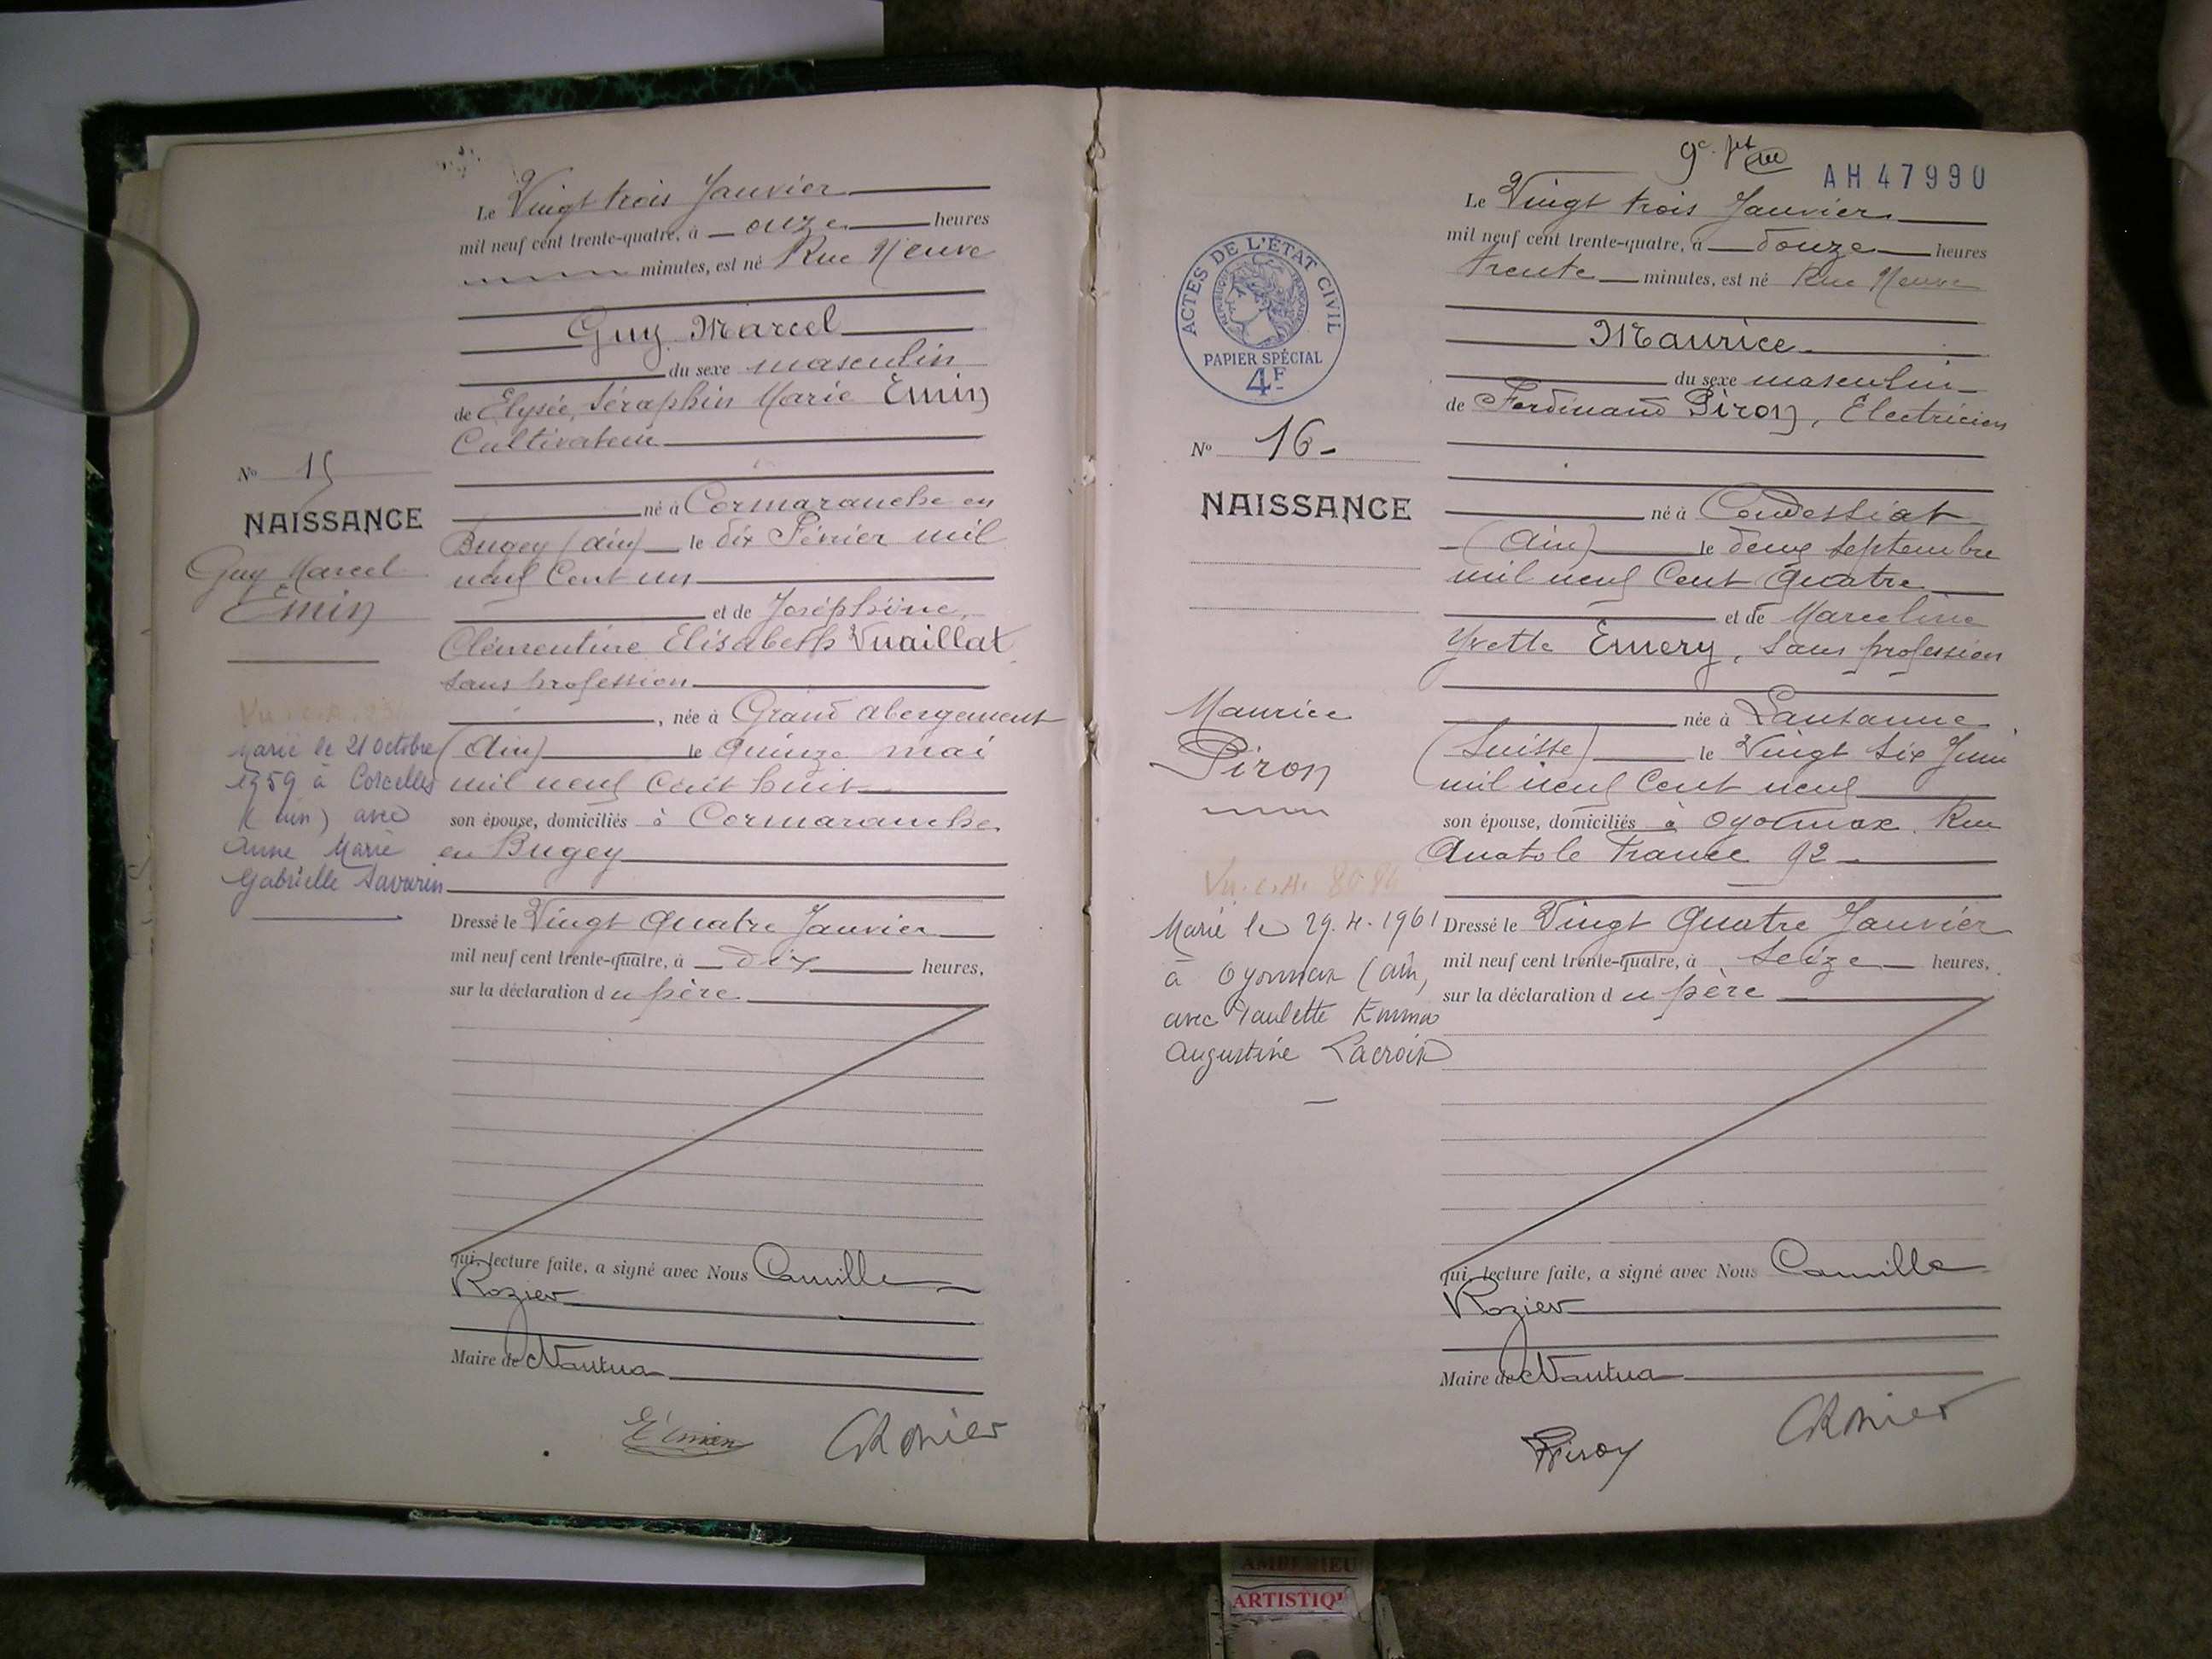 Le Vingt trois Janvier
mil neuf cent trente-quatre, à onze heures
minutes, est né Rue Neuve
Guy Marcel
du sexe masculin
de Elysée, Séraphin Marie Emin
Cultivateur
né à Cormaranche en
Bugey (Ain) le dix Février mil
neuf Cent un
et de Joséphine,
Clémentine Elisabeth Vuaillat
sans profession
, née à Grand abergement
(Ain) le Quinze mai
mil neuf Cent huit
son épouse, domiciliés à Cormaranche
en Bugey
Dressé le Vingt Quatre Janvier
mil neuf cent trente-quatre, à dix heures,
sur la déclaration du père
qui, lecture faite, a signé avec Nous Camille
Rozier
Maire de Nantua
Emin CRozier
No 15
NAISSANCE
Guy Marcel
Emin
marié le 21 octobre
1959 à Corcelles
(Ain) avec
Anne Marie
Gabrielle Savarin
9e
AH 47990
Le Vingt trois Janvier
mil neuf cent trente-quatre, à douze heures
trente minutes, est né Rue Neuve
Maurice
du sexe masculin
de Ferdinand Piron, Electricien
né à Condessiat
(Ain) le deux septembre
mil neuf Cent Quatre
et de Marceline
Yvette Emery, sans profession
née à Lausanne
(Suisse) le Vingt six Juin
mil neuf Cent neuf
son épouse, domiciliés à Oyonnax, Rue
Anatole France 92
Dressé le Vingt Quatre Janvier
mil neuf cent trente-quatre, à seize heures,
sur la déclaration du père
qui, lecture faite, a signé avec Nous Camille
Rozier
Maire de Nantua
Piron CRozier
ACTES DE L'ÉTAT CIVIL
RÉPUBLIQUE FRANÇAISE
PAPIER SPÉCIAL
4F
No 16
NAISSANCE
Maurice
Piron
Vu. C.A. 80.86
Marié le 29.4.1961
à Oyonnax (Ain)
avec Paulette Emma
Augustine Lacroix
AMBERIEU
ARTISTIQ